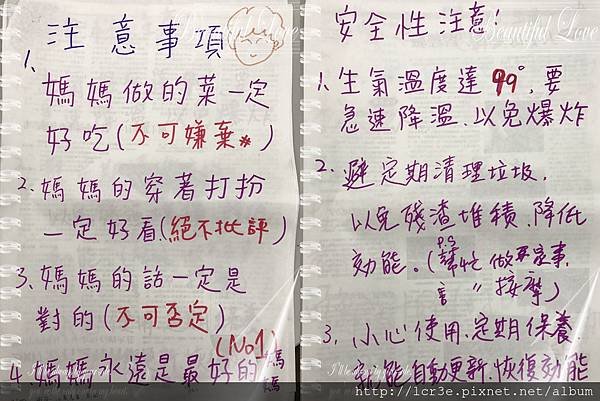 注意事項
1. 媽媽做的菜一定
好吃(不可嫌棄*)
2. 媽媽的穿著打扮
一定好看(絕不批評)
3. 媽媽的話一定是
對的(不可否定)
(No1)
4. 媽媽永遠是最好的媽媽
安全性注意!
Beautiful Love
1. 生氣溫度達99°,要
急速降溫、以免爆炸
2. 避定期清理垃圾,
以免殘渣堆積、降低
效能。(P.S 幫忙做家事,
〃 按摩)
3. 小心使用、定期保養,
就能自動更新、恢復效能
http://lcr3e.pixnet.net/album